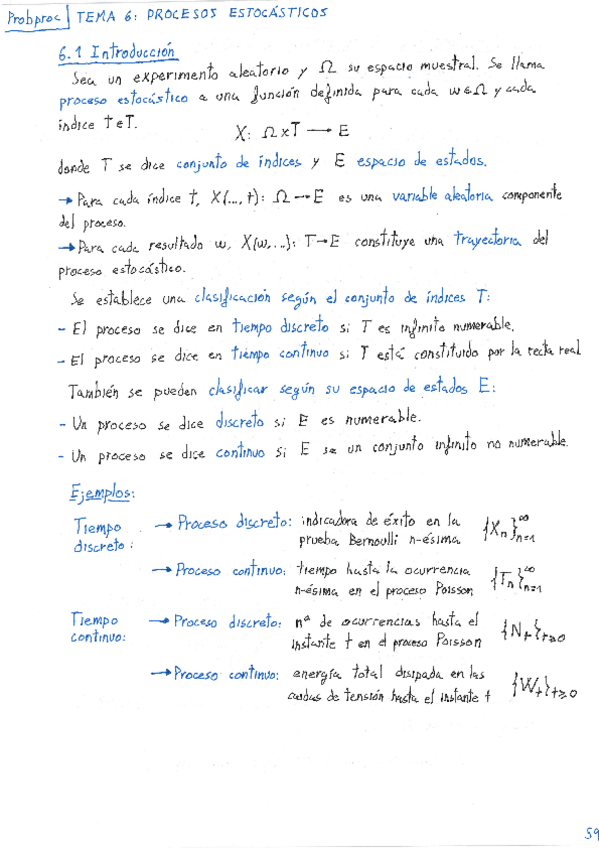 Probproc TEMA 6: PROCESOS ESTOCÁSTICOS
6.1 Introducción
Sea un experimento aleatorio y Ω su espacio muestral. Se llama
proceso estocástico a una función definida para cada w∈Ω y cada
índice t∈T.
X: Ω×T → E
donde T se dice conjunto de índices y E espacio de estados.
→ Para cada índice t, X(..., t): Ω → E es una variable aleatoria componente
del proceso.
→ Para cada resultado w, X(w,...): T→E constituye una trayectoria del
proceso estocástico.
Se establece una clasificación según el conjunto de índices T:
- El proceso se dice en tiempo discreto si T es infinito numerable.
- El proceso se dice en tiempo continuo si T está constituido por la recta real
También se pueden clasificar según su espacio de estados E:
- Un proceso se dice discreto si E es numerable.
- Un proceso se dice continuo si E se un conjunto infinito no numerable.
Ejemplos:
Tiempo discreto: → Proceso discreto: indicadora de éxito en la
prueba Bernoulli n-ésima {Xn}∞n=1
→ Proceso continuo: tiempo hasta la ocurrencia
n-ésima en el proceso Poisson {Tn}∞n=1
Tiempo continuo: → Proceso discreto: nº de ocurrencias hasta el
instante t en el proceso Poisson {Nt}t≥0
→ Proceso continuo: energía total disipada en las
caídas de tensión hasta el instante t {Wt}t≥0
59